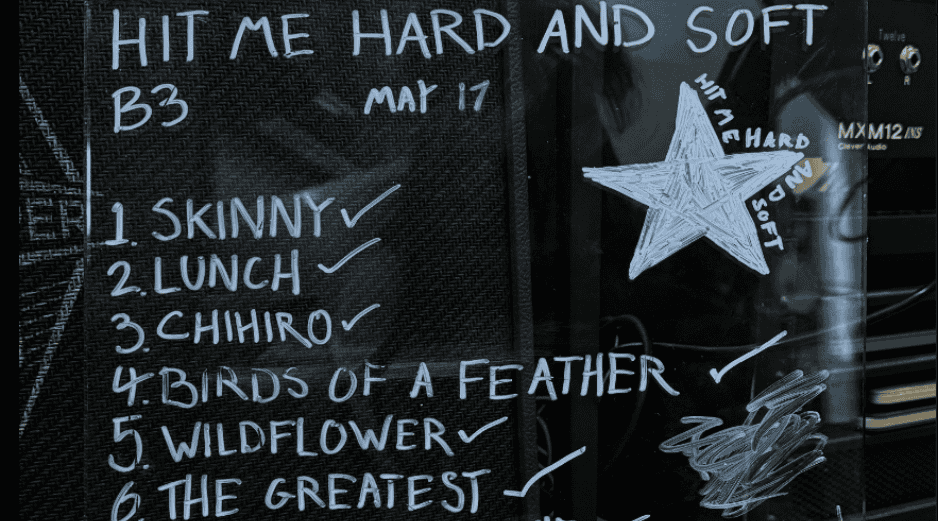 HIT ME HARD AND SOFT
B3
MAY 17
HIT ME HARD AND SOFT
Twelve
L R
MXM12/INS
Clever Audio
ER
1. SKINNY ✓
2. LUNCH ✓
3. CHIHIRO ✓
4. BIRDS OF A FEATHER ✓
5. WILDFLOWER ✓
6. THE GREATEST ✓